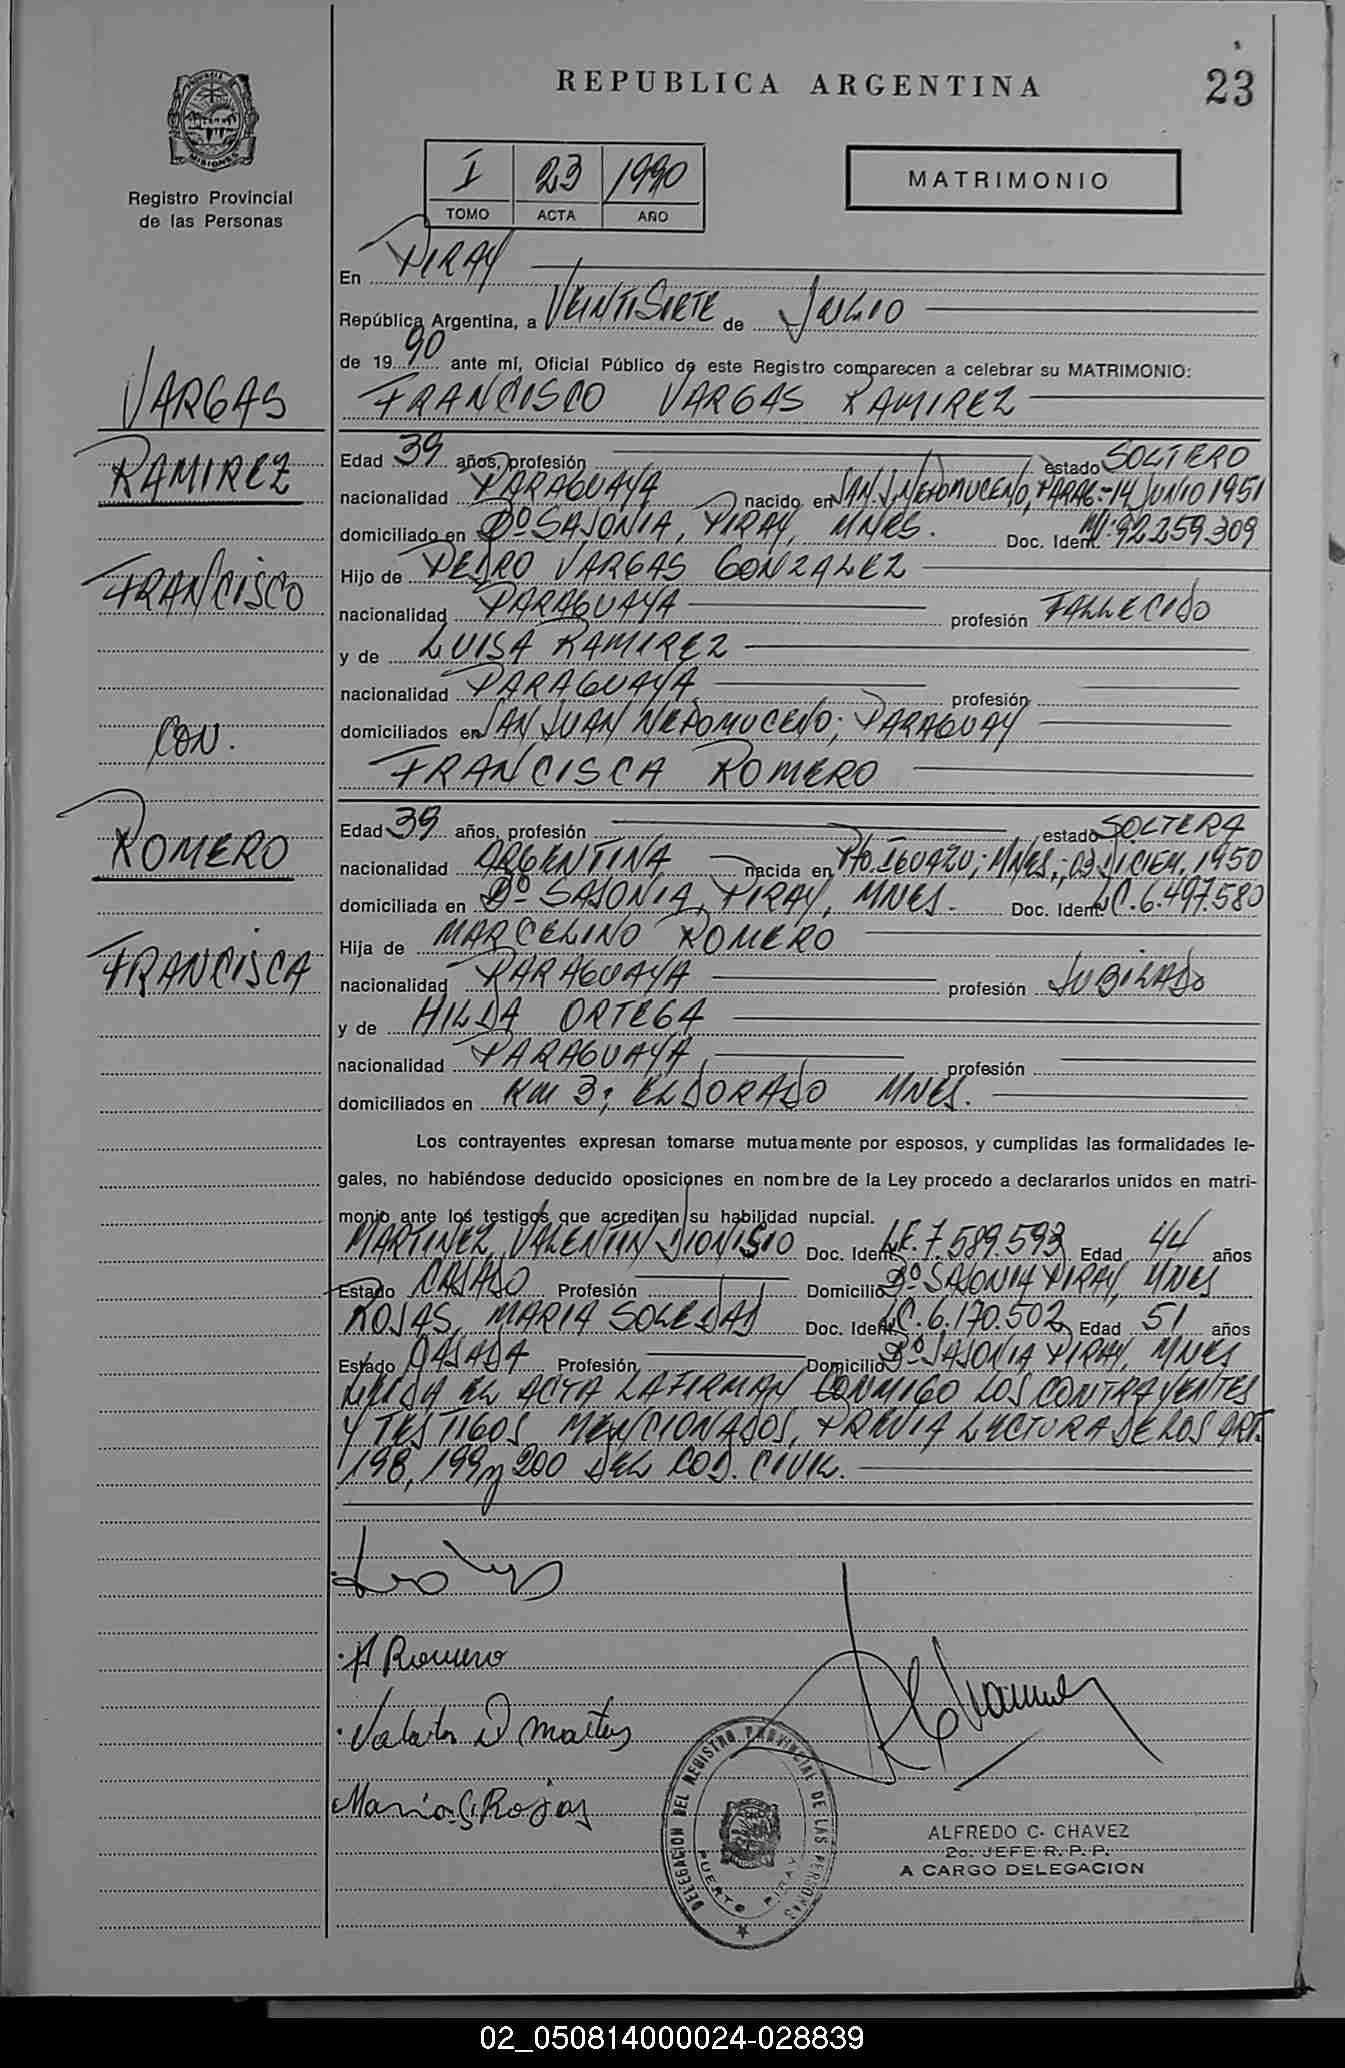 REPUBLICA ARGENTINA
23
MISIONES
Registro Provincial
de las Personas
I 23 1990
TOMO ACTA AÑO
MATRIMONIO
En PIRAY
República Argentina, a VEINTISIETE de JULIO
de 19 90 ante mí, Oficial Público de este Registro comparecen a celebrar su MATRIMONIO:
FRANCISCO VARGAS RAMIREZ
VARGAS
RAMIREZ
FRANCISCO
CON.
ROMERO
FRANCISCA
Edad 39 años, profesión estado SOLTERO
nacionalidad PARAGUAYA nacido en SAN J. NEPOMUCENO, PARAG.- 14 JUNIO 1951
domiciliado en Bº SAJONIA, PIRAY, MNES. Doc. Ident. 92.259.309
Hijo de PEDRO VARGAS GONZALEZ
nacionalidad PARAGUAYA profesión FALLECIDO
y de LUISA RAMIREZ
nacionalidad PARAGUAYA profesión
domiciliados en SAN JUAN NEPOMUCENO; PARAGUAY
FRANCISCA ROMERO
Edad 39 años, profesión estado SOLTERA
nacionalidad ARGENTINA nacida en PTO. IGUAZU; MNES.; 03 DICIEM. 1950
domiciliada en Bº SAJONIA, PIRAY, MNES. Doc. Ident. LC. 6.497.580
Hija de MARCELINO ROMERO
nacionalidad PARAGUAYA profesión JUBILADO
y de HILDA ORTEGA
nacionalidad PARAGUAYA profesión
domiciliados en KM 3; ELDORADO MNES.
Los contrayentes expresan tomarse mutuamente por esposos, y cumplidas las formalidades le-
gales, no habiéndose deducido oposiciones en nombre de la Ley procedo a declararlos unidos en matri-
monio ante los testigos que acreditan su habilidad nupcial.
MARTINEZ, VALENTIN DIONISIO Doc. Ident. LE. 7.589.593 Edad 44 años
Estado CASADO Profesión Domicilio Bº SAJONIA PIRAY, MNES
ROJAS, MARIA SOLEDAD Doc. Ident. LC. 6.170.502 Edad 51 años
Estado CASADA Profesión Domicilio Bº SAJONIA PIRAY, MNES
LEIDA EL ACTA LA FIRMAN CONMIGO LOS CONTRAYENTES
Y TESTIGOS MENCIONADOS, PREVIA LECTURA DE LOS ART.
198, 199 y 200 DEL COD. CIVIL.
F Romero
Maria S. Rojas
DELEGACION DEL REGISTRO PROVINCIAL DE LAS PERSONAS
PUERTO PIRAY
ALFREDO C. CHAVEZ
2o. JEFE R. P. P.
A CARGO DELEGACION
02_050814000024-028839